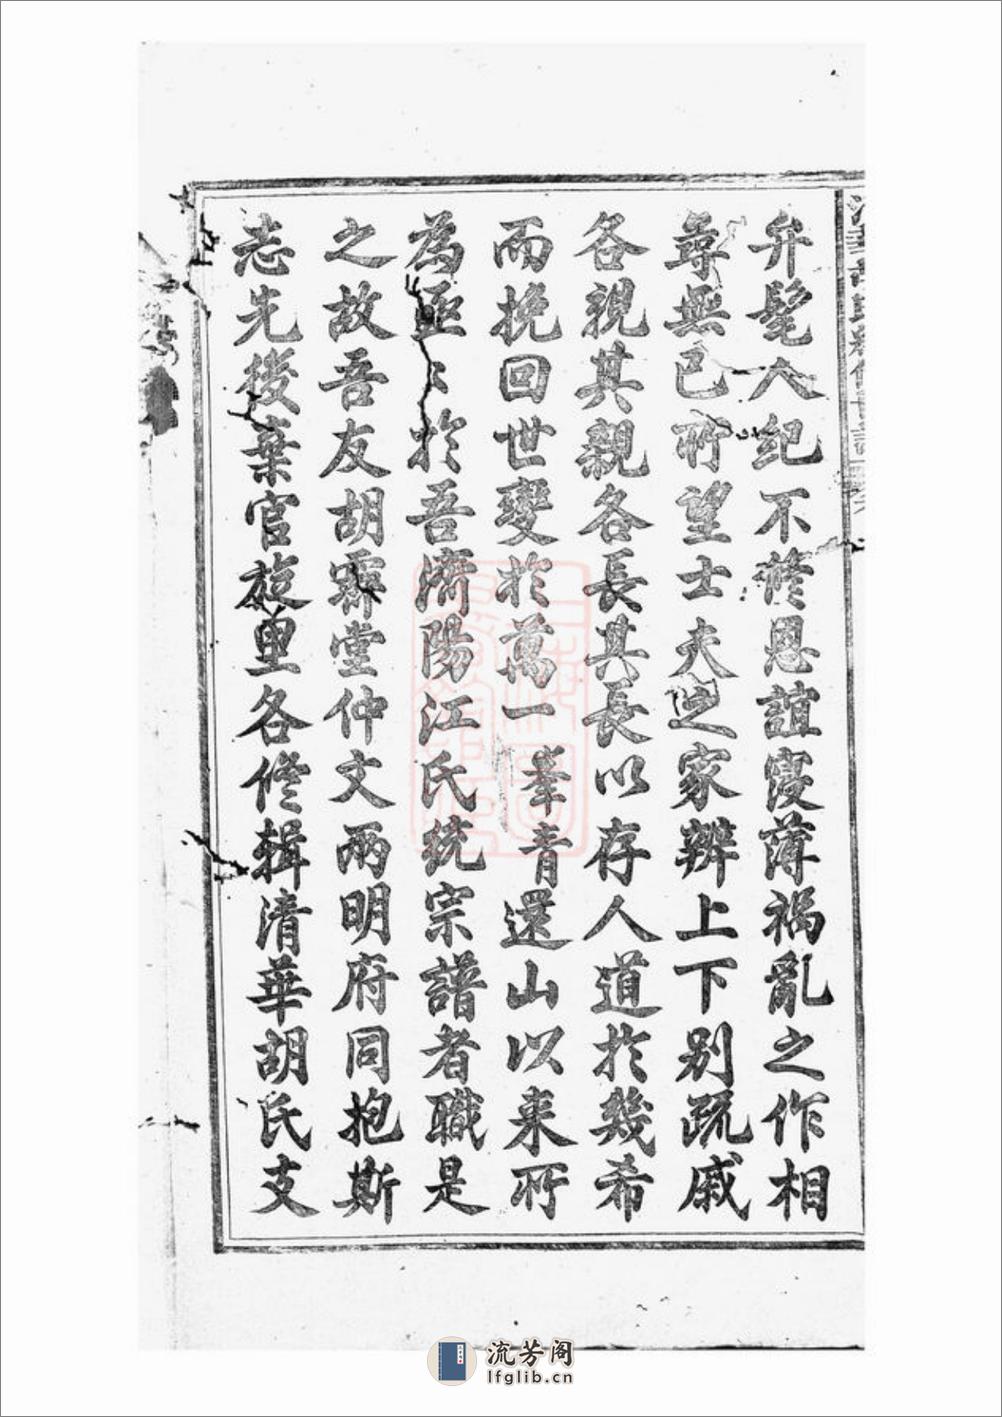 弁髦人紀不修恩誼寖薄禍亂之作相
尋無已所望士夫之家辨上下別疏戚
各視其親各長其長以存人道於幾希
而挽回世變於萬一峯青還山以來所
為亟〻於吾濟陽江氏統宗譜者職是
之故吾友胡霽堂仲文兩明府同抱斯
志先後棄官旋里各修輯清華胡氏支
流芳阁
lfglib.cn